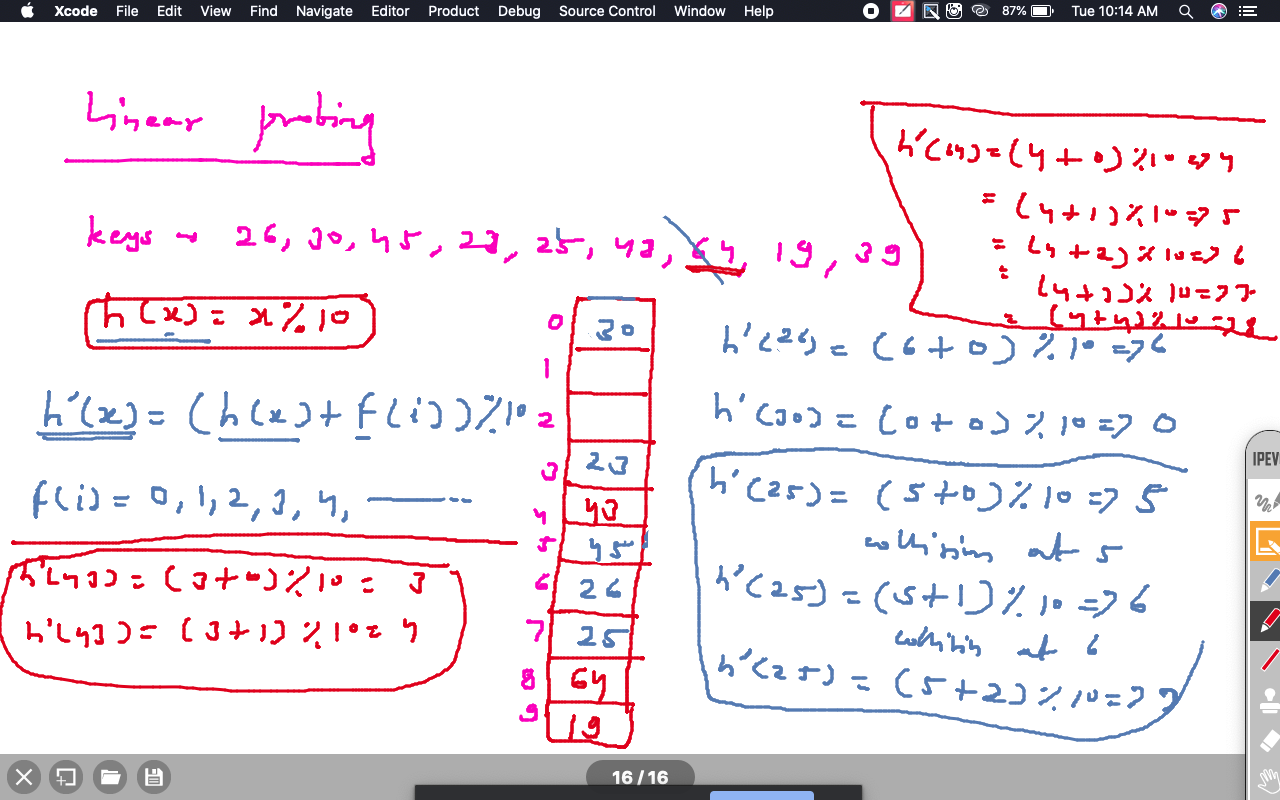 Xcode File Edit View Find Navigate Editor Product Debug Source Control Window Help 87% Tue 10:14 AM
Linear probing
keys → 26, 30, 45, 23, 25, 43, 64, 19, 39
h(x) = x%10
h'(x) = (h(x) + f(i))%10
f(i) = 0, 1, 2, 3, 4, ———
h'(43) = (3+0)%10 = 3
h'(43) = (3+1)%10 = 4
0 30
1
2
3 23
4 43
5 45
6 26
7 25
8 64
9 19
h'(64) = (4+0)%10 => 4
= (4+1)%10 => 5
= (4+2)%10 => 6
= (4+3)%10 => 7
= (4+4)%10 => 8
h'(26) = (6+0)%10 => 6
h'(30) = (0+0)%10 => 0
h'(25) = (5+0)%10 => 5
collision at 5
h'(25) = (5+1)%10 => 6
collision at 6
h'(25) = (5+2)%10 => 7
IPEV
16/16